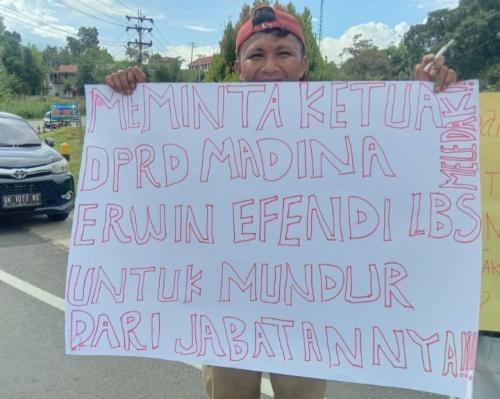 MEMINTA KETUA
DPRD MADINA
ERWIN EFENDI LBS
UNTUK MUNDUR
DARI JABATANNYA!!!
MELEDAK!!
BK 1017 RE